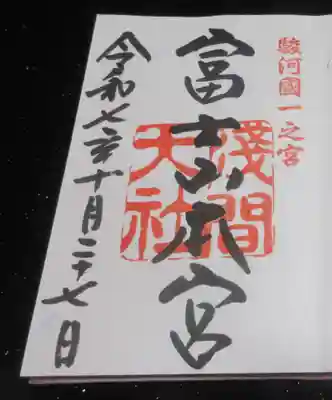 駿河國一之宮
富士山本宮
淺間大社
令和七年十月二十七日